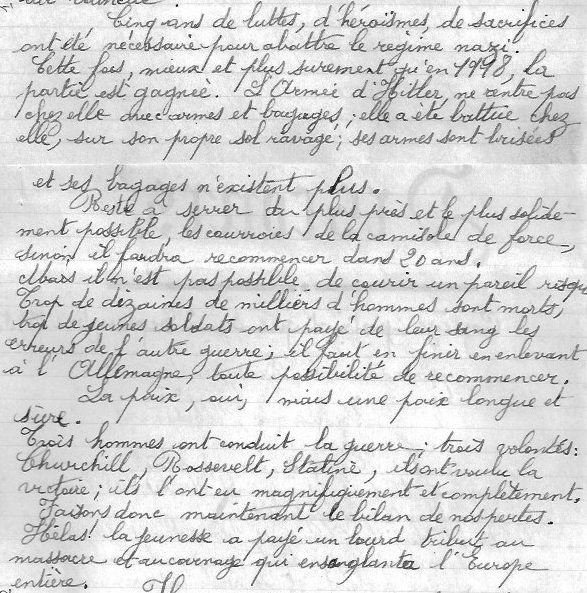 Cinq ans de luttes, d'héroïsmes, de sacrifices
ont été nécessaire pour abattre le régime nazi.
Cette fois, mieux et plus surement qu'en 1998, la
partie est gagnée. L'Armée d'Hitler ne rentre pas
chez elle avec armes et bagages; elle a été battue chez
elle, sur son propre sol ravagé; ses armes sont brisées
et ses bagages n'existent plus.
Reste à serrer du plus près et le plus solide-
ment possible, les courroies de la camisole de force,
sinon il faudra recommencer dans 20 ans.
Mais il n'est pas possible de courir un pareil risque
Trop de dizaines de milliers d'hommes sont morts,
trop de jeunes soldats ont payé de leur sang les
erreurs de l'autre guerre; il faut en finir en enlevant
à l'Allemagne, toute possibilité de recommencer.
La paix, oui, mais une paix longue et
sûre.
Trois hommes ont conduit la guerre; trois volontés:
Churchill, Rossevelt, Staline, ils ont voulu la
victoire; ils l'ont eu magnifiquement et complètement.
Faisons donc maintenant le bilan de nos pertes.
Hélas! la jeunesse a payé un lourd tribut au
massacre et au carnage qui ensanglanta l'Europe
entière.